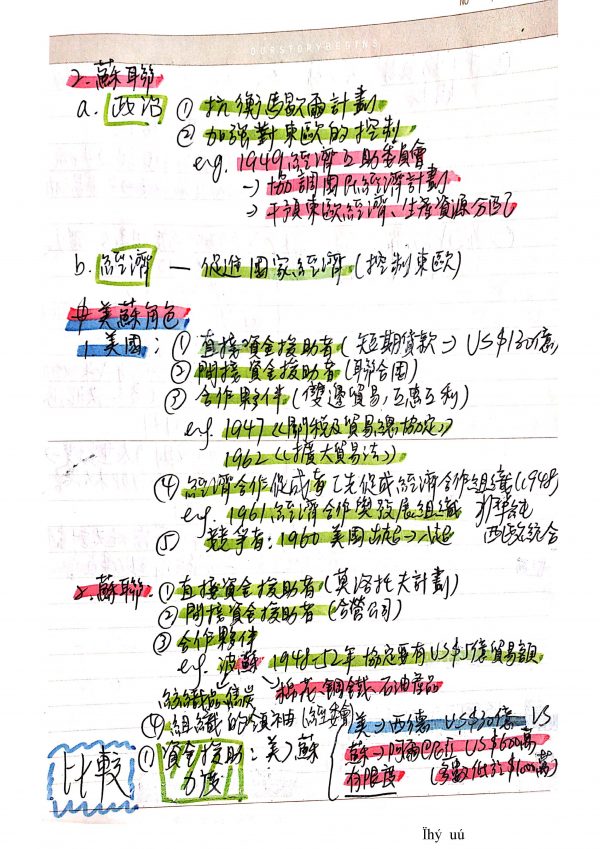 OURSTORYBEGINS
2. 蘇聯
a. 政治 ① 抗衡馬歇爾計劃
② 加強對東歐的控制
e.g. 1949經濟互助委員會
→ 協調國民經濟計劃
→ 干預東歐經濟、生產資源分配
b. 經濟 — 促進國家經濟 (控制東歐)
美蘇角色
1. 美國: ① 直接資金援助者 (短期貸款 → US$130億)
② 間接資金援助者 (聯合國)
③ 合作夥伴 (雙邊貿易,互惠互利)
e.g. 1947《關稅及貿易總協定》
1962《擴大貿易法》
④ 經濟合作促成者 促成經濟合作組織 (1948)
e.g. 1961經濟合作與發展組織 西歐統合
⑤ 競爭者: 1960 美國
2. 蘇聯 ① 直接資金援助者 (莫洛托夫計劃)
② 間接資金援助者 (合營公司)
③ 合作夥伴
e.g. 波蘇 1948-52年 協定要有US$5億貿易額
紡織品 煤炭 棉花 鋼鐵 石油產品
④ 組織的領袖 (經委會)
比較 ① 資金援助力度: 美>蘇
美→西德 US$30億 VS
蘇→阿爾巴尼亞 US$600萬
有限度 (多數低於$100萬)
Ïhý uú